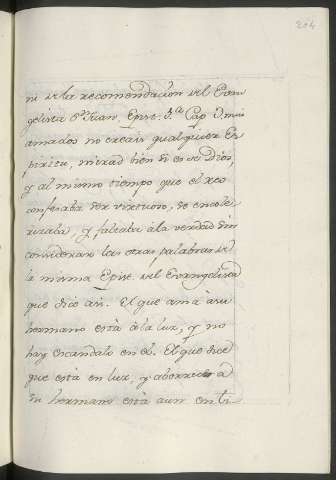 204
ni de la recomendacion del Evan
gelista Sⁿ Juan, Epist. 1.ª Cap. mis
amados no creais qualquier Es
piritu, mirad bien si es de Dios,
y al mismo tiempo que el reo
confesaba ser virtuoso, se encole
rizaba, y faltaba à la verdad sin
considerar las otras palabras de
la misma Epist. del Evangelista
que dice asi. El que ama à su
hermano està à la luz, y no
hay escandalo en el. El que dice
que està en luz, y aborrece à
su hermano està aun en ti-